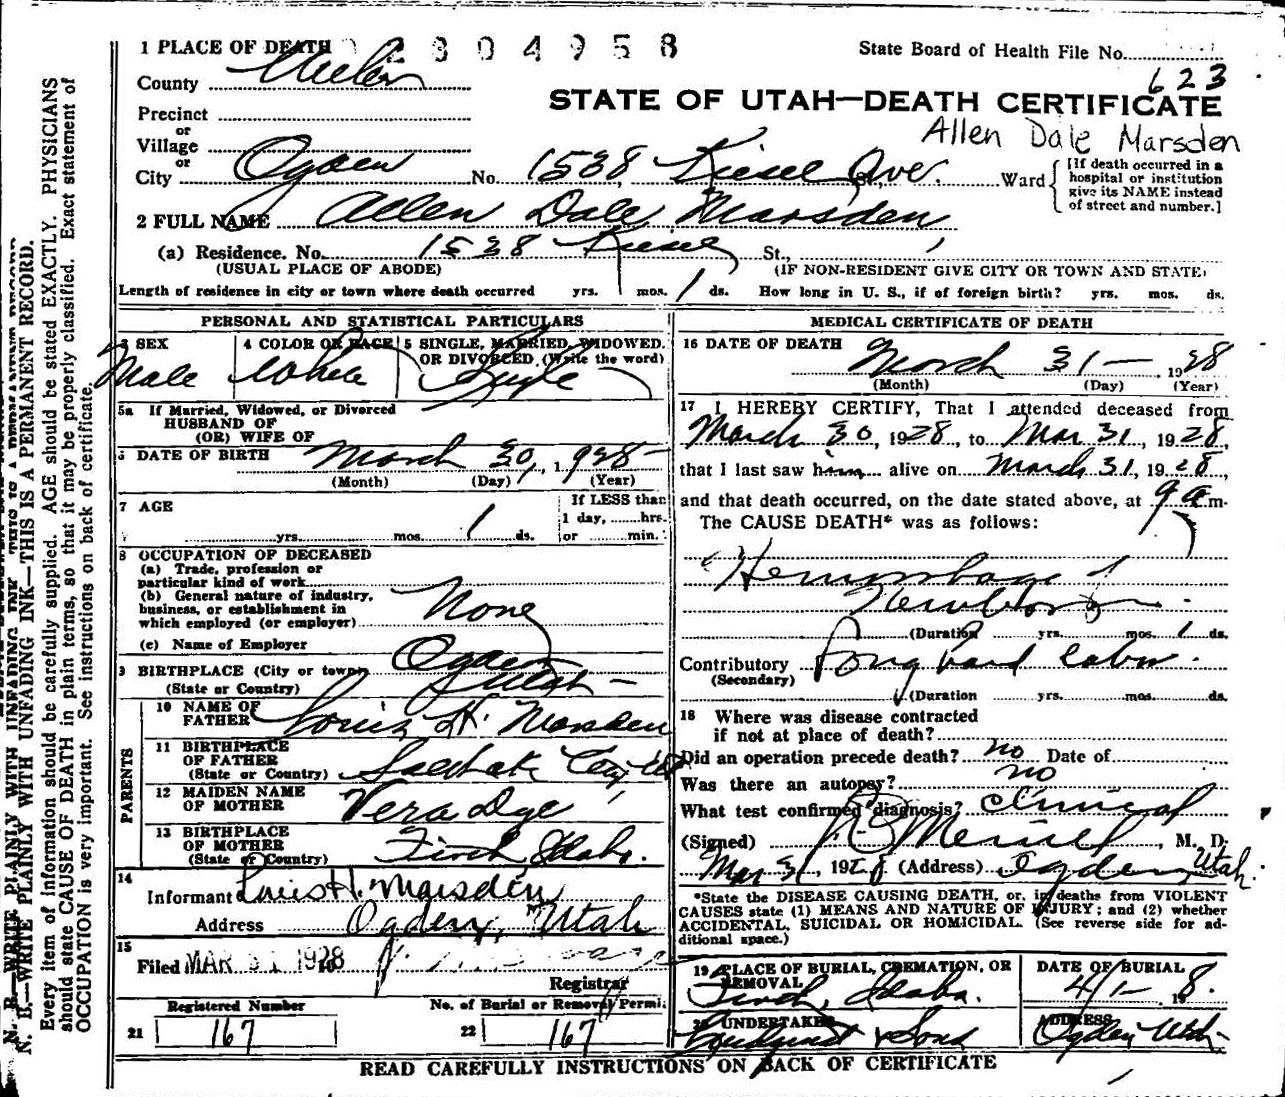 1 PLACE OF DEATH 2804958
State Board of Health File No.
County Weber
623
STATE OF UTAH—DEATH CERTIFICATE
Precinct
or
Village
Allen Dale Marsden
or
City Ogden No. 1538 Kiesel Ave. St., Ward
[If death occurred in a
hospital or institution
give its NAME instead
of street and number.]
2 FULL NAME Allen Dale Marsden
(a) Residence. No. 1538 Kiesel St.,
(USUAL PLACE OF ABODE) (IF NON-RESIDENT GIVE CITY OR TOWN AND STATE)
Length of residence in city or town where death occurred yrs. mos. 1 ds. How long in U. S., if of foreign birth? yrs. mos. ds.
PERSONAL AND STATISTICAL PARTICULARS
3 SEX 4 COLOR OR RACE 5 SINGLE, MARRIED, WIDOWED,
OR DIVORCED (Write the word)
Male White Single
5a If Married, Widowed, or Divorced
HUSBAND OF
(OR) WIFE OF
6 DATE OF BIRTH March 30, 1928
(Month) (Day) (Year)
7 AGE If LESS than
1 day, ......hrs.
yrs. mos. 1 ds. or ...... min.
8 OCCUPATION OF DECEASED
(a) Trade, profession or
particular kind of work
(b) General nature of industry,
business, or establishment in
which employed (or employer) None
(c) Name of Employer
9 BIRTHPLACE (City or town) Ogden
(State or Country) Utah
PARENTS
10 NAME OF
FATHER Louis H. Marsden
11 BIRTHPLACE
OF FATHER
(State or Country) Salt Lake City Ut
12 MAIDEN NAME
OF MOTHER Vera Dye
13 BIRTHPLACE
OF MOTHER
(State or Country) Firth Idaho.
14
Informant Louis H. Marsden
Address Ogden, Utah
15
Filed MAR 31 1928
Registrar
Registered Number No. of Burial or Removal Permit
21 167 22 167
MEDICAL CERTIFICATE OF DEATH
16 DATE OF DEATH March 31 — 1928
(Month) (Day) (Year)
17 I HEREBY CERTIFY, That I attended deceased from
March 30, 1928, to Mar 31, 1928,
that I last saw him alive on March 31, 1928,
and that death occurred, on the date stated above, at 9 a m.
The CAUSE DEATH* was as follows:
Hemorrhage of
Newborn
(Duration yrs. mos. 1 ds.
Contributory Long hard labor.
(Secondary)
(Duration yrs. mos. ds.
18 Where was disease contracted
if not at place of death?
Did an operation precede death? no Date of
Was there an autopsy? no
What test confirmed diagnosis? Clinical
(Signed) M. D.
Mar 31, 1928 (Address) Ogden, Utah.
*State the DISEASE CAUSING DEATH, or, in deaths from VIOLENT
CAUSES state (1) MEANS AND NATURE OF INJURY; and (2) whether
ACCIDENTAL, SUICIDAL OR HOMICIDAL. (See reverse side for ad-
ditional space.)
19 PLACE OF BURIAL, CREMATION, OR
REMOVAL
Firth, Idaho.
DATE OF BURIAL
4/1 - 198.
20 UNDERTAKER
& Sons
ADDRESS
Ogden Utah
READ CAREFULLY INSTRUCTIONS ON BACK OF CERTIFICATE
N. B.—WRITE PLAINLY WITH UNFADING INK—THIS IS A PERMANENT RECORD.
Every item of information should be carefully supplied. AGE should be stated EXACTLY. PHYSICIANS
should state CAUSE OF DEATH in plain terms, so that it may be properly classified. Exact statement of
OCCUPATION is very important. See instructions on back of certificate.